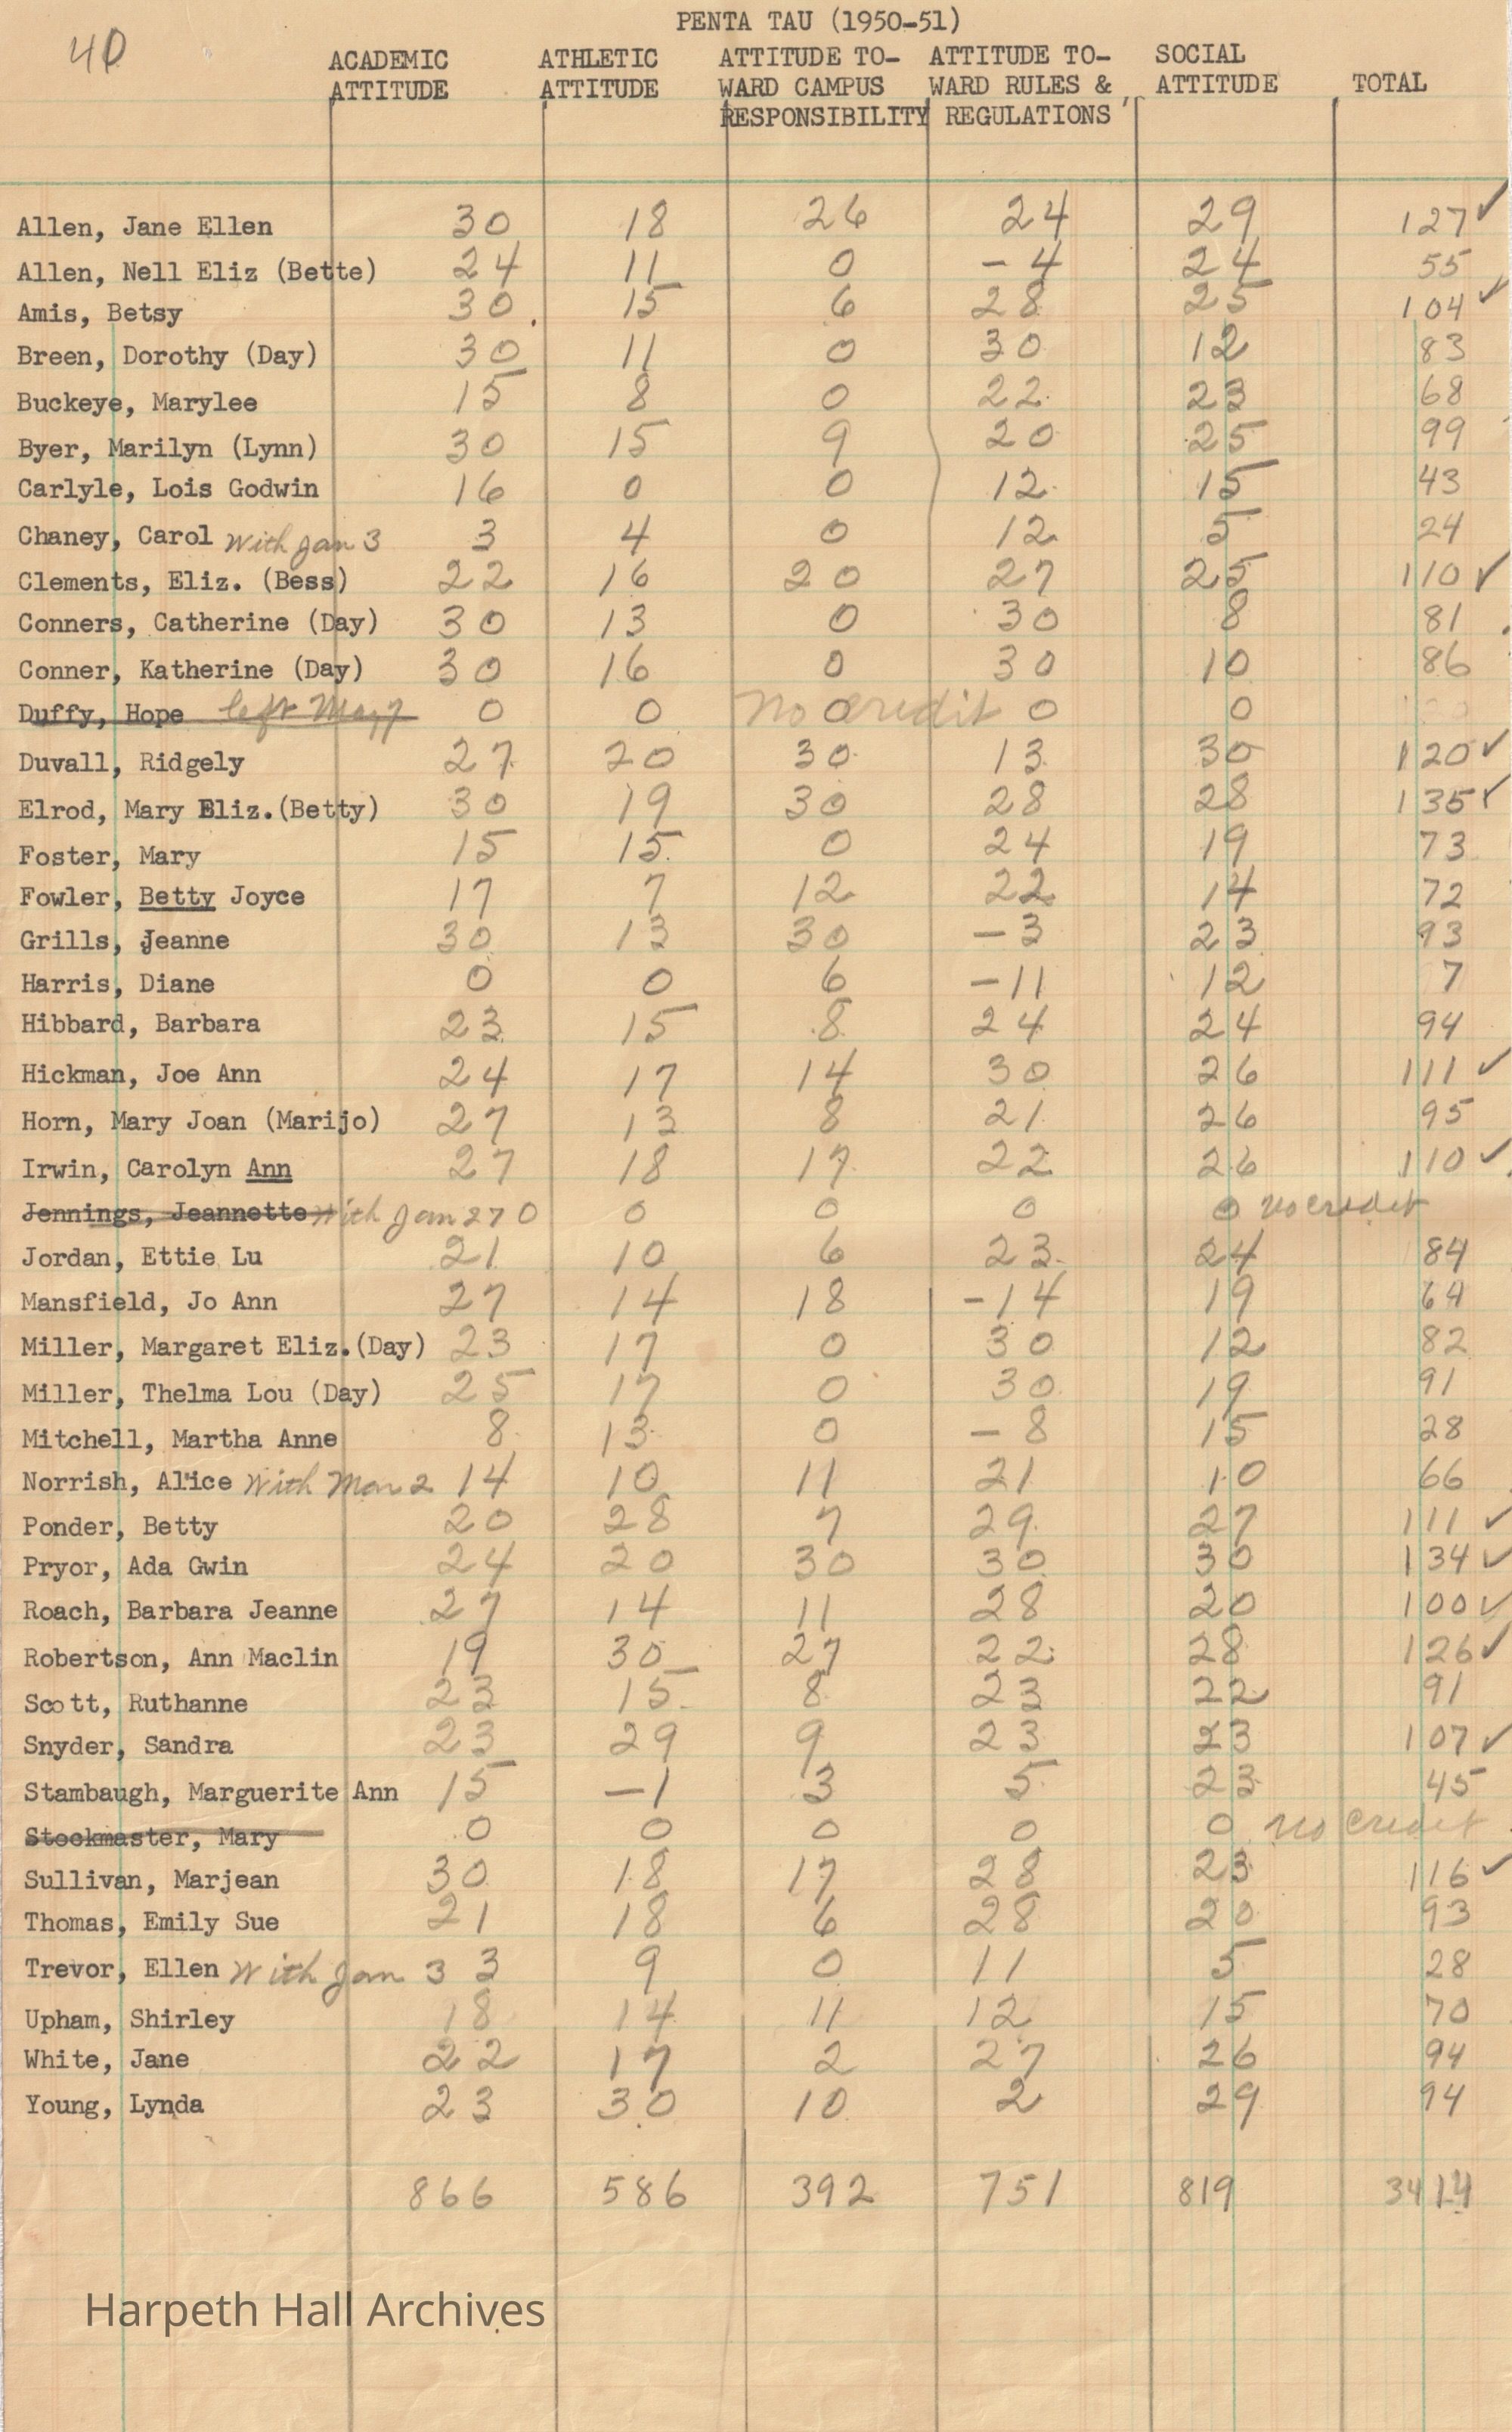 PENTA TAU (1950-51)
40
ACADEMIC ATTITUDE ATHLETIC ATTITUDE ATTITUDE TO- WARD CAMPUS RESPONSIBILITY ATTITUDE TO- WARD RULES & REGULATIONS SOCIAL ATTITUDE TOTAL
Allen, Jane Ellen 30 18 26 24 29 127 ✓
Allen, Nell Eliz (Bette) 24 11 0 -4 24 55
Amis, Betsy 30 15 6 28 25 104 ✓
Breen, Dorothy (Day) 30 11 0 30 12 83
Buckeye, Marylee 15 8 0 22 23 68
Byer, Marilyn (Lynn) 30 15 9 20 25 99
Carlyle, Lois Godwin 16 0 0 12 15 43
Chaney, Carol With Jan 3 3 4 0 12 5 24
Clements, Eliz. (Bess) 22 16 20 27 25 110 ✓
Conners, Catherine (Day) 30 13 0 30 8 81
Conner, Katherine (Day) 30 16 0 30 10 86
Duffy, Hope left May 7 0 0 No 0 credit 0 0
Duvall, Ridgely 27 20 30 13 30 120 ✓
Elrod, Mary Eliz.(Betty) 30 19 30 28 28 135 ✓
Foster, Mary 15 15 0 24 19 73
Fowler, Betty Joyce 17 7 12 22 14 72
Grills, Jeanne 30 13 30 -3 23 93
Harris, Diane 0 0 6 -11 12 7
Hibbard, Barbara 23 15 8 24 24 94
Hickman, Joe Ann 24 17 14 30 26 111 ✓
Horn, Mary Joan (Marijo) 27 13 8 21 26 95
Irwin, Carolyn Ann 27 18 17 22 26 110 ✓
Jennings, Jeannette With Jan 27 0 0 0 0 0 no credit
Jordan, Ettie Lu 21 10 6 23 24 84
Mansfield, Jo Ann 27 14 18 -14 19 64
Miller, Margaret Eliz.(Day) 23 17 0 30 12 82
Miller, Thelma Lou (Day) 25 17 0 30 19 91
Mitchell, Martha Anne 8 13 0 -8 15 28
Norrish, Alice With Mar 2 14 10 11 21 10 66
Ponder, Betty 20 28 7 29 27 111 ✓
Pryor, Ada Gwin 24 20 30 30 30 134 ✓
Roach, Barbara Jeanne 27 14 11 28 20 100 ✓
Robertson, Ann Maclin 19 30 27 22 28 126 ✓
Scott, Ruthanne 23 15 8 23 22 91
Snyder, Sandra 23 29 9 23 23 107 ✓
Stambaugh, Marguerite Ann 15 -1 3 5 23 45
Stockmaster, Mary 0 0 0 0 0 no credit
Sullivan, Marjean 30 18 17 28 23 116 ✓
Thomas, Emily Sue 21 18 6 28 20 93
Trevor, Ellen With Jan 3 3 9 0 11 5 28
Upham, Shirley 18 14 11 12 15 70
White, Jane 22 17 2 27 26 94
Young, Lynda 23 30 10 2 29 94
866 586 392 751 819 3414
Harpeth Hall Archives